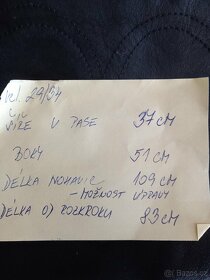 vel. 29/34
ŠÍŘE V PASE 37 CM
BOKY 51 CM
DÉLKA NOHAVIC 109 CM
- MOŽNOST ÚPRAVY
DÉLKA OD ROZKROKU 83 CM
Bazoš.cz